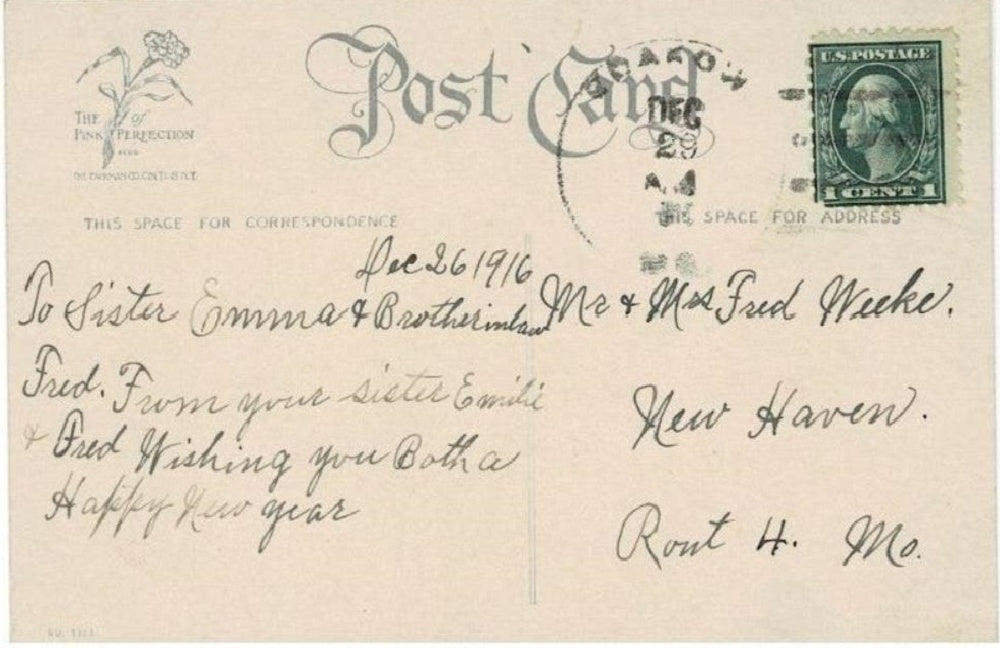 Post Card
THE of
PINK PERFECTION
U.S. POSTAGE
1 CENT 1
DEC
29
A.M
THIS SPACE FOR CORRESPONDENCE
THIS SPACE FOR ADDRESS
Dec 26 1916
To Sister Emma & Brotherinlaw
Fred. From your sister Emilie
& Fred Wishing you Both a
Happy New year
Mr & Mrs Fred Weeke.
New Haven.
Rout 4. Mo.